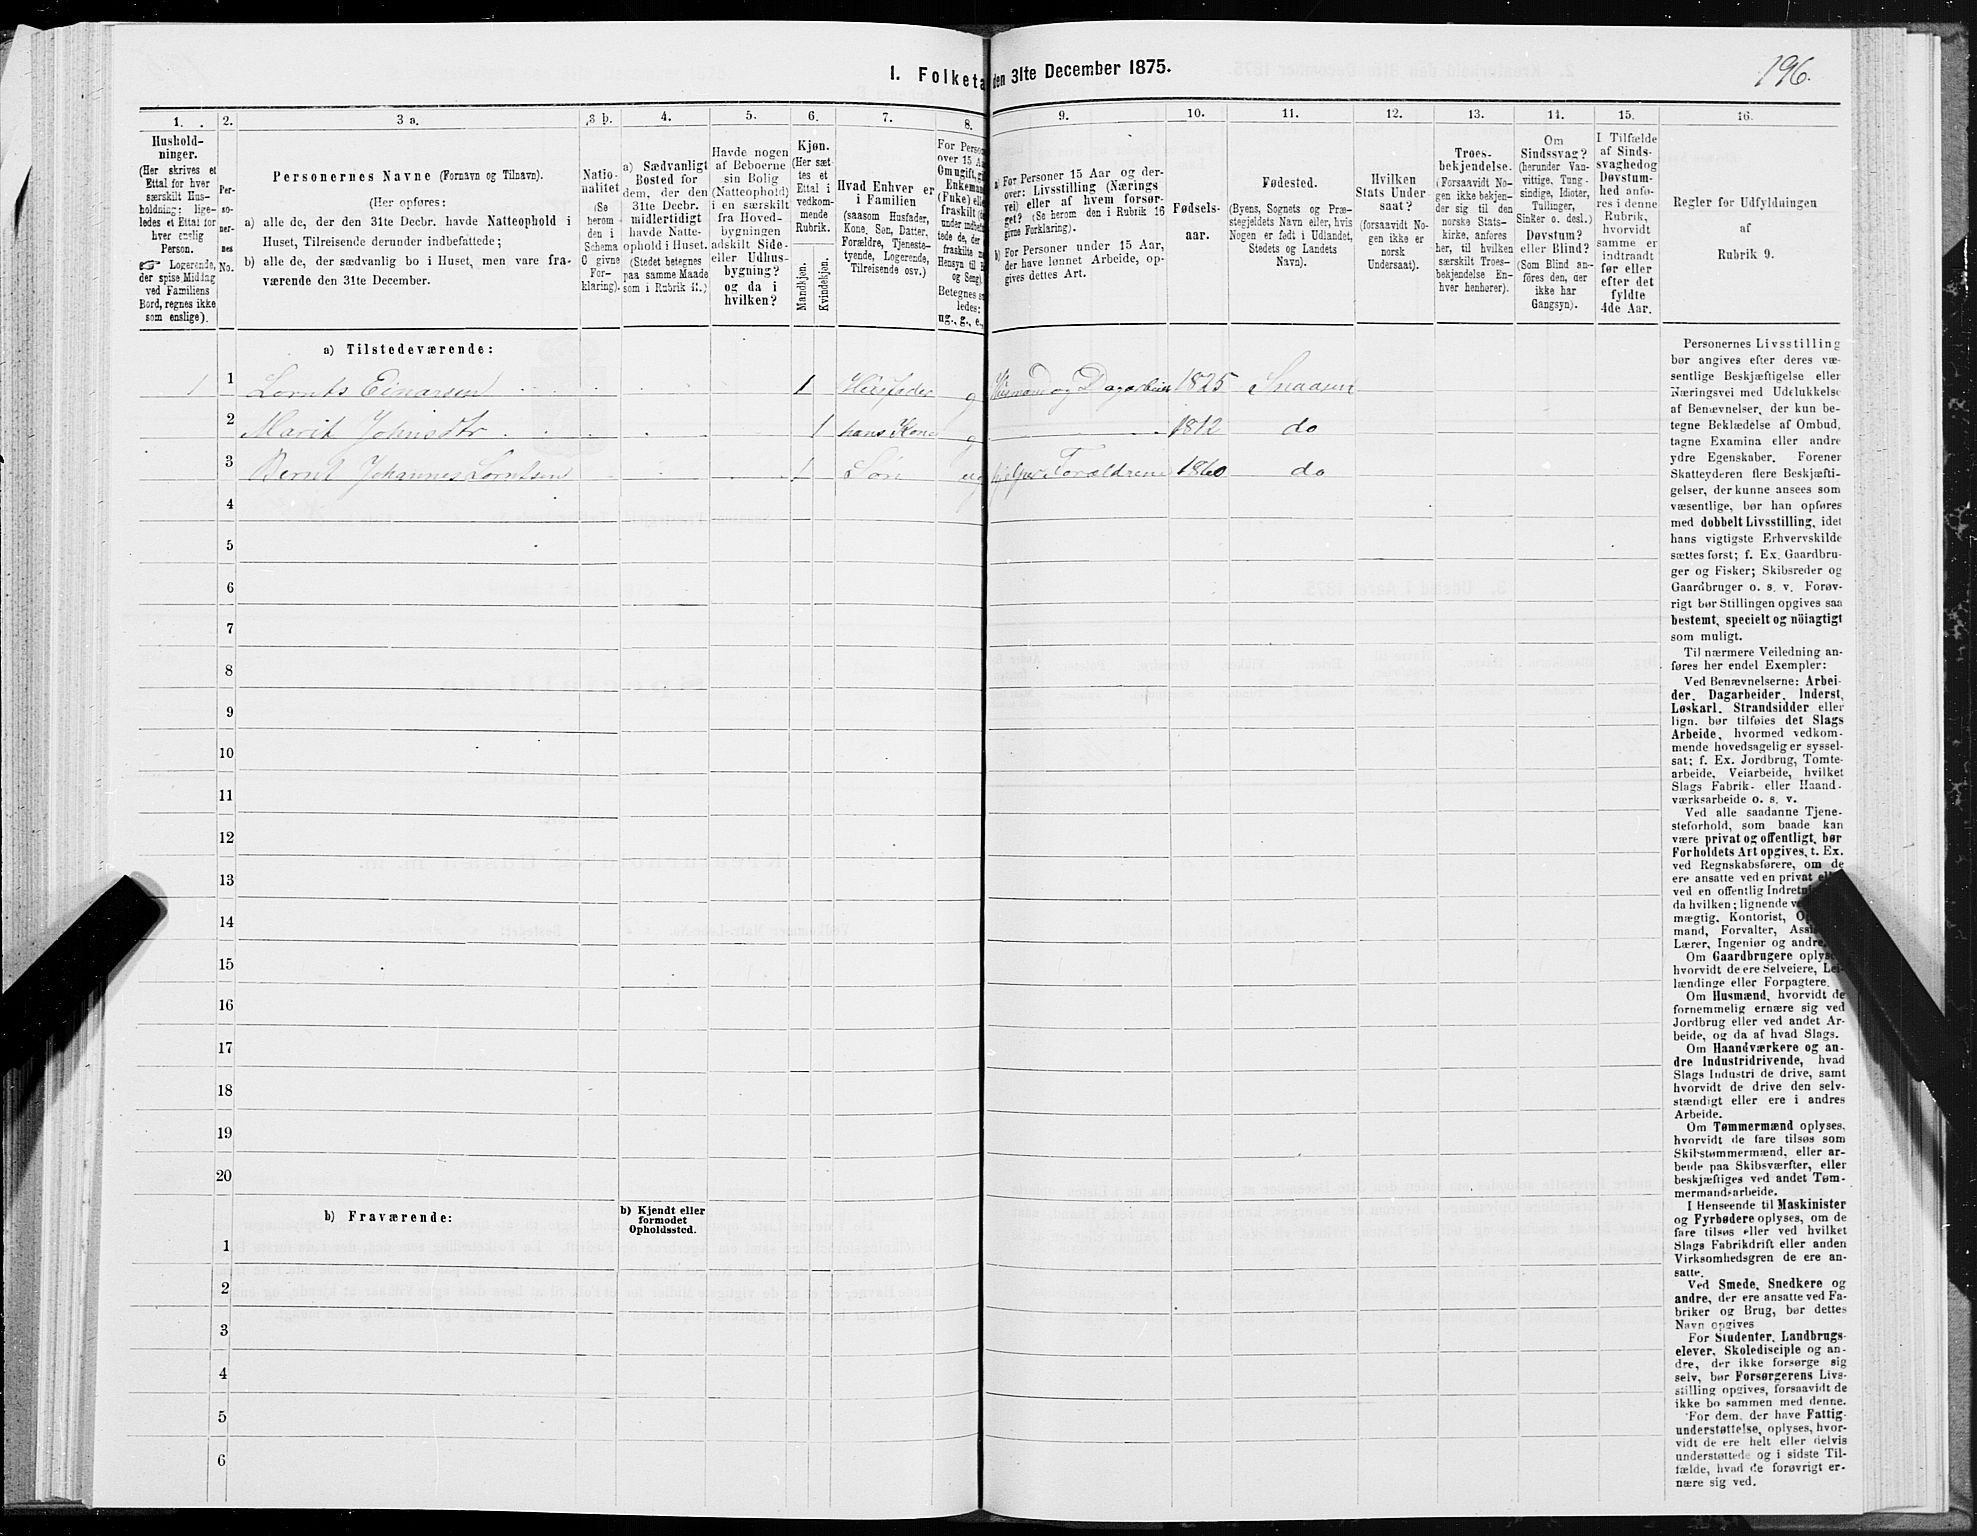 196.
1. Folketa
den 31te December 1875.
1. 2. 3 a. 3 b. 4. 5. 6. 7. 8. 9. 10. 11. 12. 13. 14. 15. 16.
Hushold-
ninger.
(Her skrives et
Ettal for hver
særskilt Hus-
holdning; lige-
ledes et Ettal for
hver enslig
Person.
☞ Logerende,
der spise Middag
ved Familiens
Bord, regnes ikke
som enslige).
Per-
so-
ner-
nes
No.
Personernes Navne (Fornavn og Tilnavn).
(Her opføres:
a) alle de, der den 31te Decbr. havde Natteophold i
Huset, Tilreisende derunder indbefattede;
b) alle de, der sædvanlig bo i Huset, men vare fra-
værende den 31te December.
Natio-
nalitet
(Se
herom
den i
Schema
O givne
For-
klaring).
a) Sædvanligt
Bosted for
dem, der den
31te Decbr.
midlertidigt
havde Natte-
ophold i Huset.
(Stedet betegnes
paa samme Maade
som i Rubrik 11.)
Havde nogen
af Beboerne
sin Bolig
(Natteophold)
i en særskilt
fra Hoved-
bygningen
adskilt Side-
eller Udhus-
bygning?
og da i
hvilken?
Kjøn.
(Her sæt-
tes et
Ettal i
vedkom-
mende
Rubrik.
Mandkjøn.
Kvindekjøn.
Hvad Enhver er
i Familien
(saasom Husfader,
Kone, Søn, Datter,
Forældre, Tjeneste-
tyende, Logerende,
Tilreisende osv.)
For Person
over 15 Aa
Om ugift, gi
Enkeman
(Fuke) elle
fraskilt (
under indbefa
tede de, der e
fraskilte m
Hensyn til B
og Seng).
Betegnes s
ledes:
ug., g., e.,
a) For Personer 15 Aar og der-
over: Livsstilling (Nærings
vei) eller af hvem forsør-
get? (Se herom den i Rubrik 16
givne Forklaring).
b) For Personer under 15 Aar,
der have lønnet Arbeide, op-
gives dettes Art.
Fødsels-
aar.
Fødested.
(Byens, Sognets og Præ-
stegjeldets Navn eller, hvis
Nogen er født i Udlandet,
Stedets og Landets
Navn).
Hvilken
Stats Under
saat?
(forsaavidt No-
gen ikke er
norsk
Undersaat).
Troes-
bekjendelse.
(Forsaavidt No-
gen ikke bekjen-
der sig til den
norske Stats-
kirke, anføres
her, til hvilken
særskilt Troes-
bekjendelse En-
hver henhører).
Om
Sindssvag?
(herunder Van-
vittige, Tung-
sindige, Idioter,
Tullinger,
Sinker o. desl.)
Døvstum?
eller Blind?
(Som Blind an-
føres den, der
ikke har
Gangsyn).
I Tilfælde
af Sinds-
svaghed og
Døvstum-
hed anfø-
res i denne
Rubrik,
hvorvidt
samme er
indtraadt
før eller
efter det
fyldte
4de Aar.
Regler for Udfyldningen
af
Rubrik 9.
a) Tilstedeværende:
1 1 Lornts Einarsen 1 Husfader g Husmand og Dagarbeider 1825 Snaasen
2 Marit Johnsdtr 1 hans Kone g 1812 do
3 Bernt Johannes Lorntsen 1 Søn ug hjelper Forældrene 1860 do
4
5
6
7
8
9
10
11
12
13
14
15
16
17
18
19
20
b) Fraværende:
b) Kjendt eller
formodet
Opholdssted.
1
2
3
4
5
6
Personernes Livsstilling
bør angives efter deres væ-
sentlige Beskjæftigelse eller
Næringsvei med Udelukkelse
af Benævnelser, der kun be-
tegne Beklædelse af Ombud,
tagne Examina eller andre
ydre Egenskaber. Forener
Skatteyderen flere Beskjæfti-
gelser, der kunne ansees som
væsentlige, bør han opføres
med dobbelt Livsstilling, idet
hans vigtigste Erhvervskilde
sættes først; f. Ex. Gaardbru-
ger og Fisker; Skibsreder og
Gaardbruger o. s. v. Forøv-
rigt bør Stillingen opgives saa
bestemt, specielt og nöiagtigt
som muligt.
Til nærmere Veiledning an-
føres her endel Exempler:
Ved Benævnelserne: Arbei-
der, Dagarbeider, Inderst,
Løskarl, Strandsidder eller
lign. bør tilføies det Slags
Arbeide, hvormed vedkom-
mende hovedsagelig er syssel-
sat; f. Ex. Jordbrug, Tomte-
arbeide, Veiarbeide, hvilket
Slags Fabrik- eller Haand-
værksarbeide o. s. v.
Ved alle saadanne Tjene-
steforhold, som baade kan
være privat og offentligt, bør
Forholdets Art opgives, t. Ex.
ved Regnskabsførere, om de
ere ansatte ved en privat el
ved en offentlig Indretn
da hvilken; lignende v
mægtig, Kontorist, Op
mand, Forvalter, Assi
Lærer, Ingeniør og andre.
Om Gaardbrugere oplys
hvorvidt de ere Selveiere, Lei-
lændinge eller Forpagtere.
Om Husmænd, hvorvidt de
fornemmelig ernære sig ved
Jordbrug eller ved andet Ar-
beide, og da af hvad Slags.
Om Haandværkere og an-
dre Industridrivende, hvad
Slags Industri de drive, samt
hvorvidt de drive den selv-
stændigt eller ere i andres
Arbeide.
Om Tømmermænd oplyses,
hvorvidt de fare tilsøs som
Skibstømmermænd, eller ar-
beide paa Skibsværfter, eller
beskjæftiges ved andet Tøm-
mermandsarbeide.
I Henseende til Maskinister
og Fyrbødere oplyses, om de
fare tilsøs eller ved hvilket
Slags Fabrikdrift eller anden
Virksomhedsgren de ere an-
satte.
Ved Smede, Snedkere og
andre, der ere ansatte ved Fa-
briker og Brug, bør dettes
Navn opgives
For Studenter, Landbrugs-
elever, Skoledisciple og an-
dre, der ikke forsørge sig
selv, bør Forsørgerens Livs-
stilling opgives, forsaavidt de
ikke bo sammen med denne.
For dem, der have Fattig-
understøttelse, oplyses, hvor-
vidt de ere helt eller delvis
understøttede og i sidste Til-
fælde, hvad de forøvrigt er-
nære sig ved.